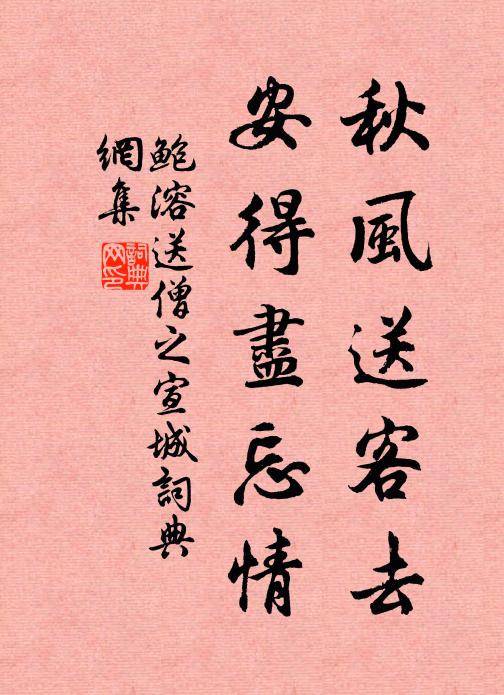 秋風送客去
安得盡忘情
鲍溶送僧之宣城詞典
網集
詞典
网印